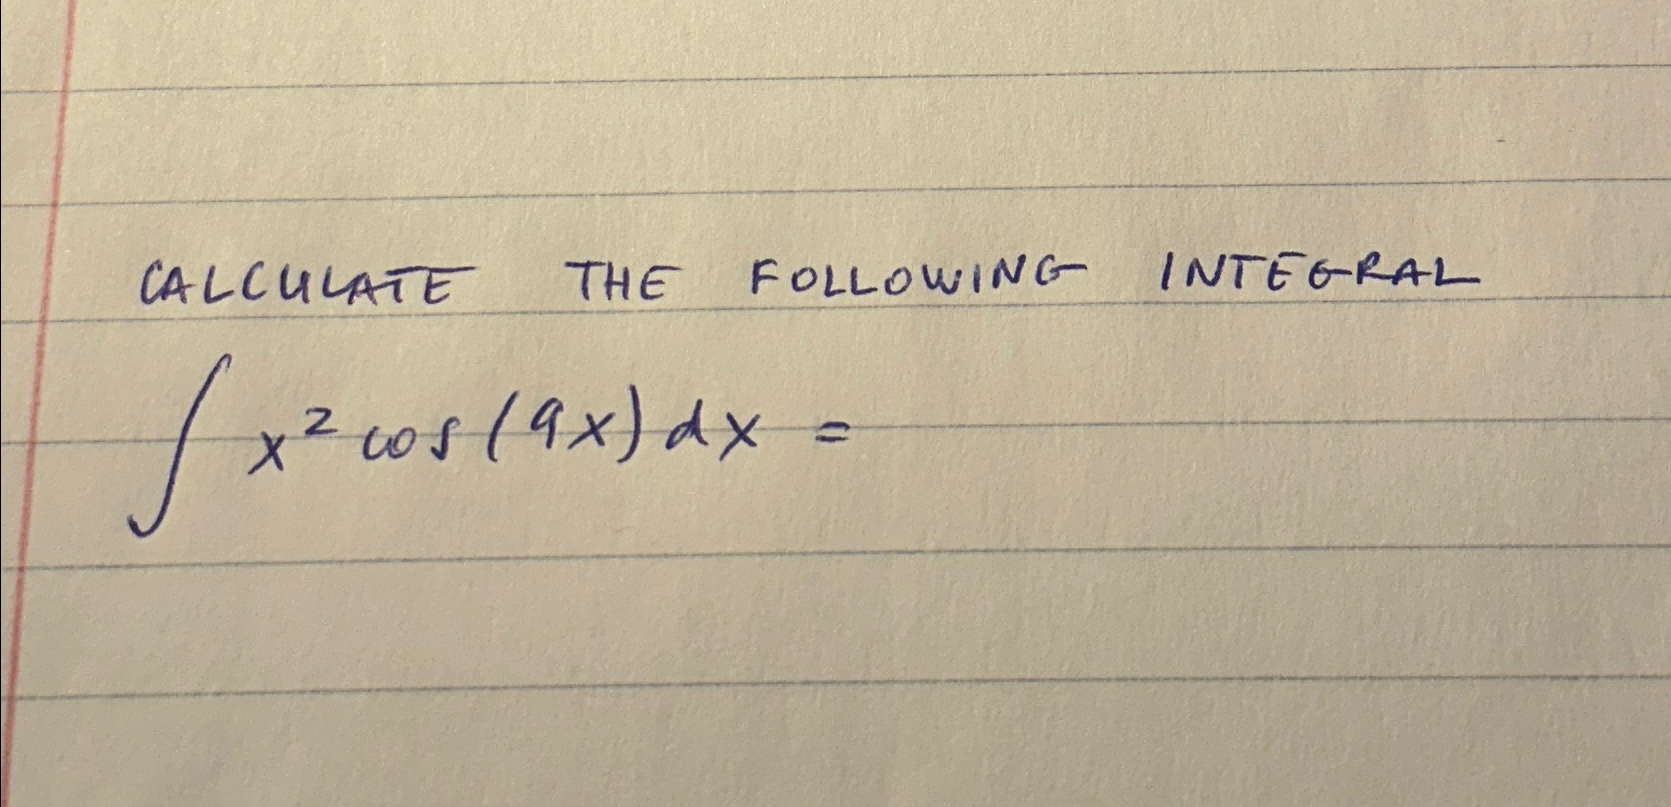 CALCULATE THE FOLLOWING INTEGRAL
∫ x² cos(9x) dx =